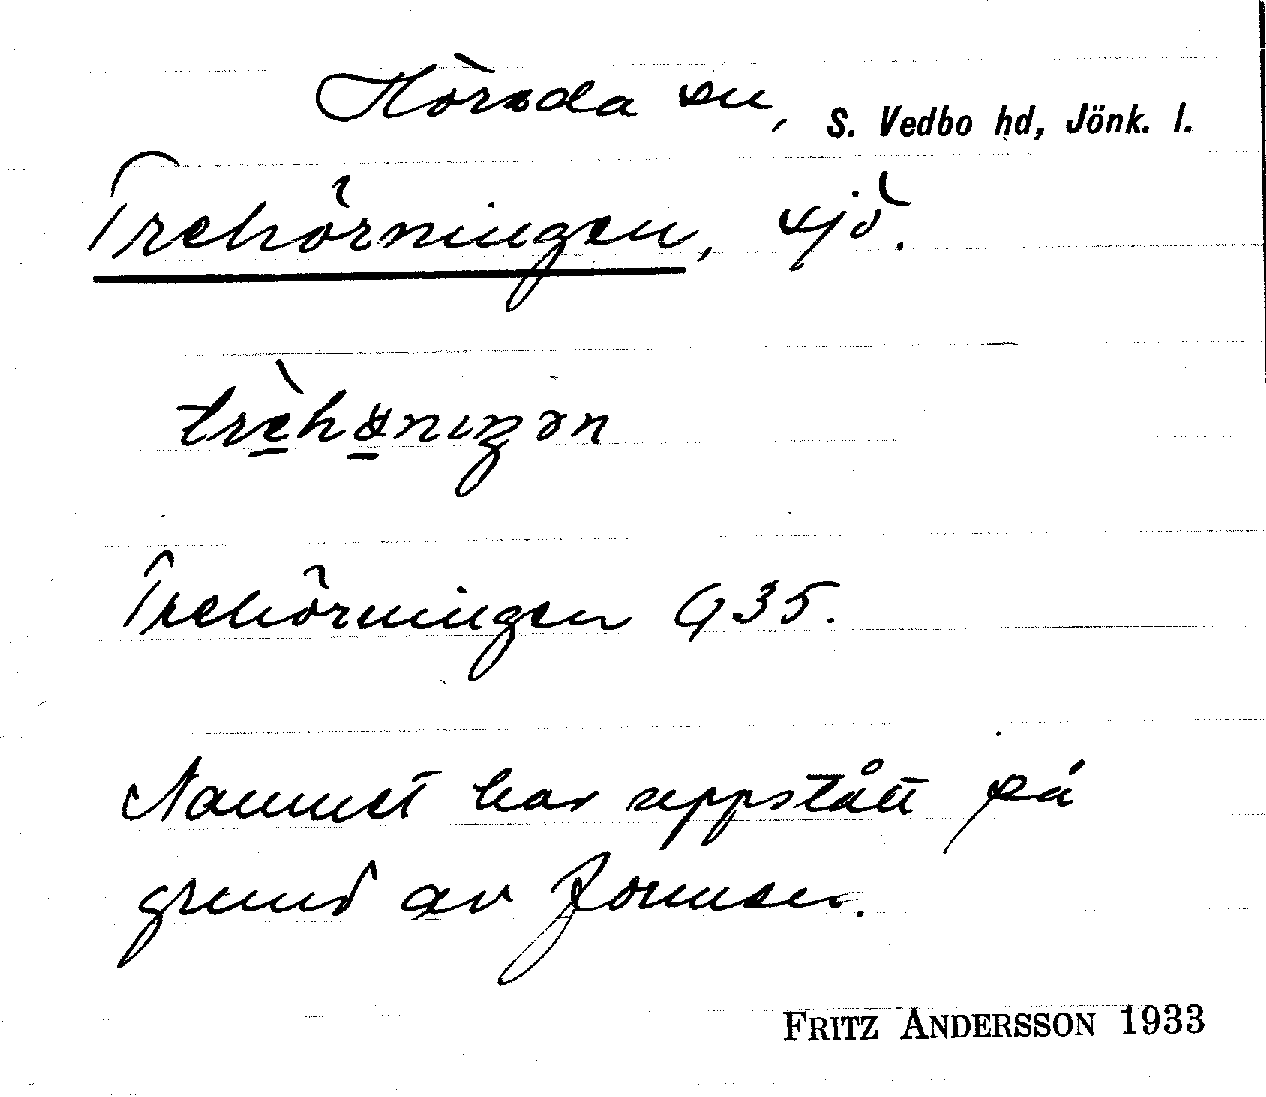 Hörsda sn, S. Vedbo hd, Jönk. l.
Trehörningen, sjö.
Trehörningen G35.
Namnet har uppstått på
grund av formen.
FRITZ ANDERSSON 1933